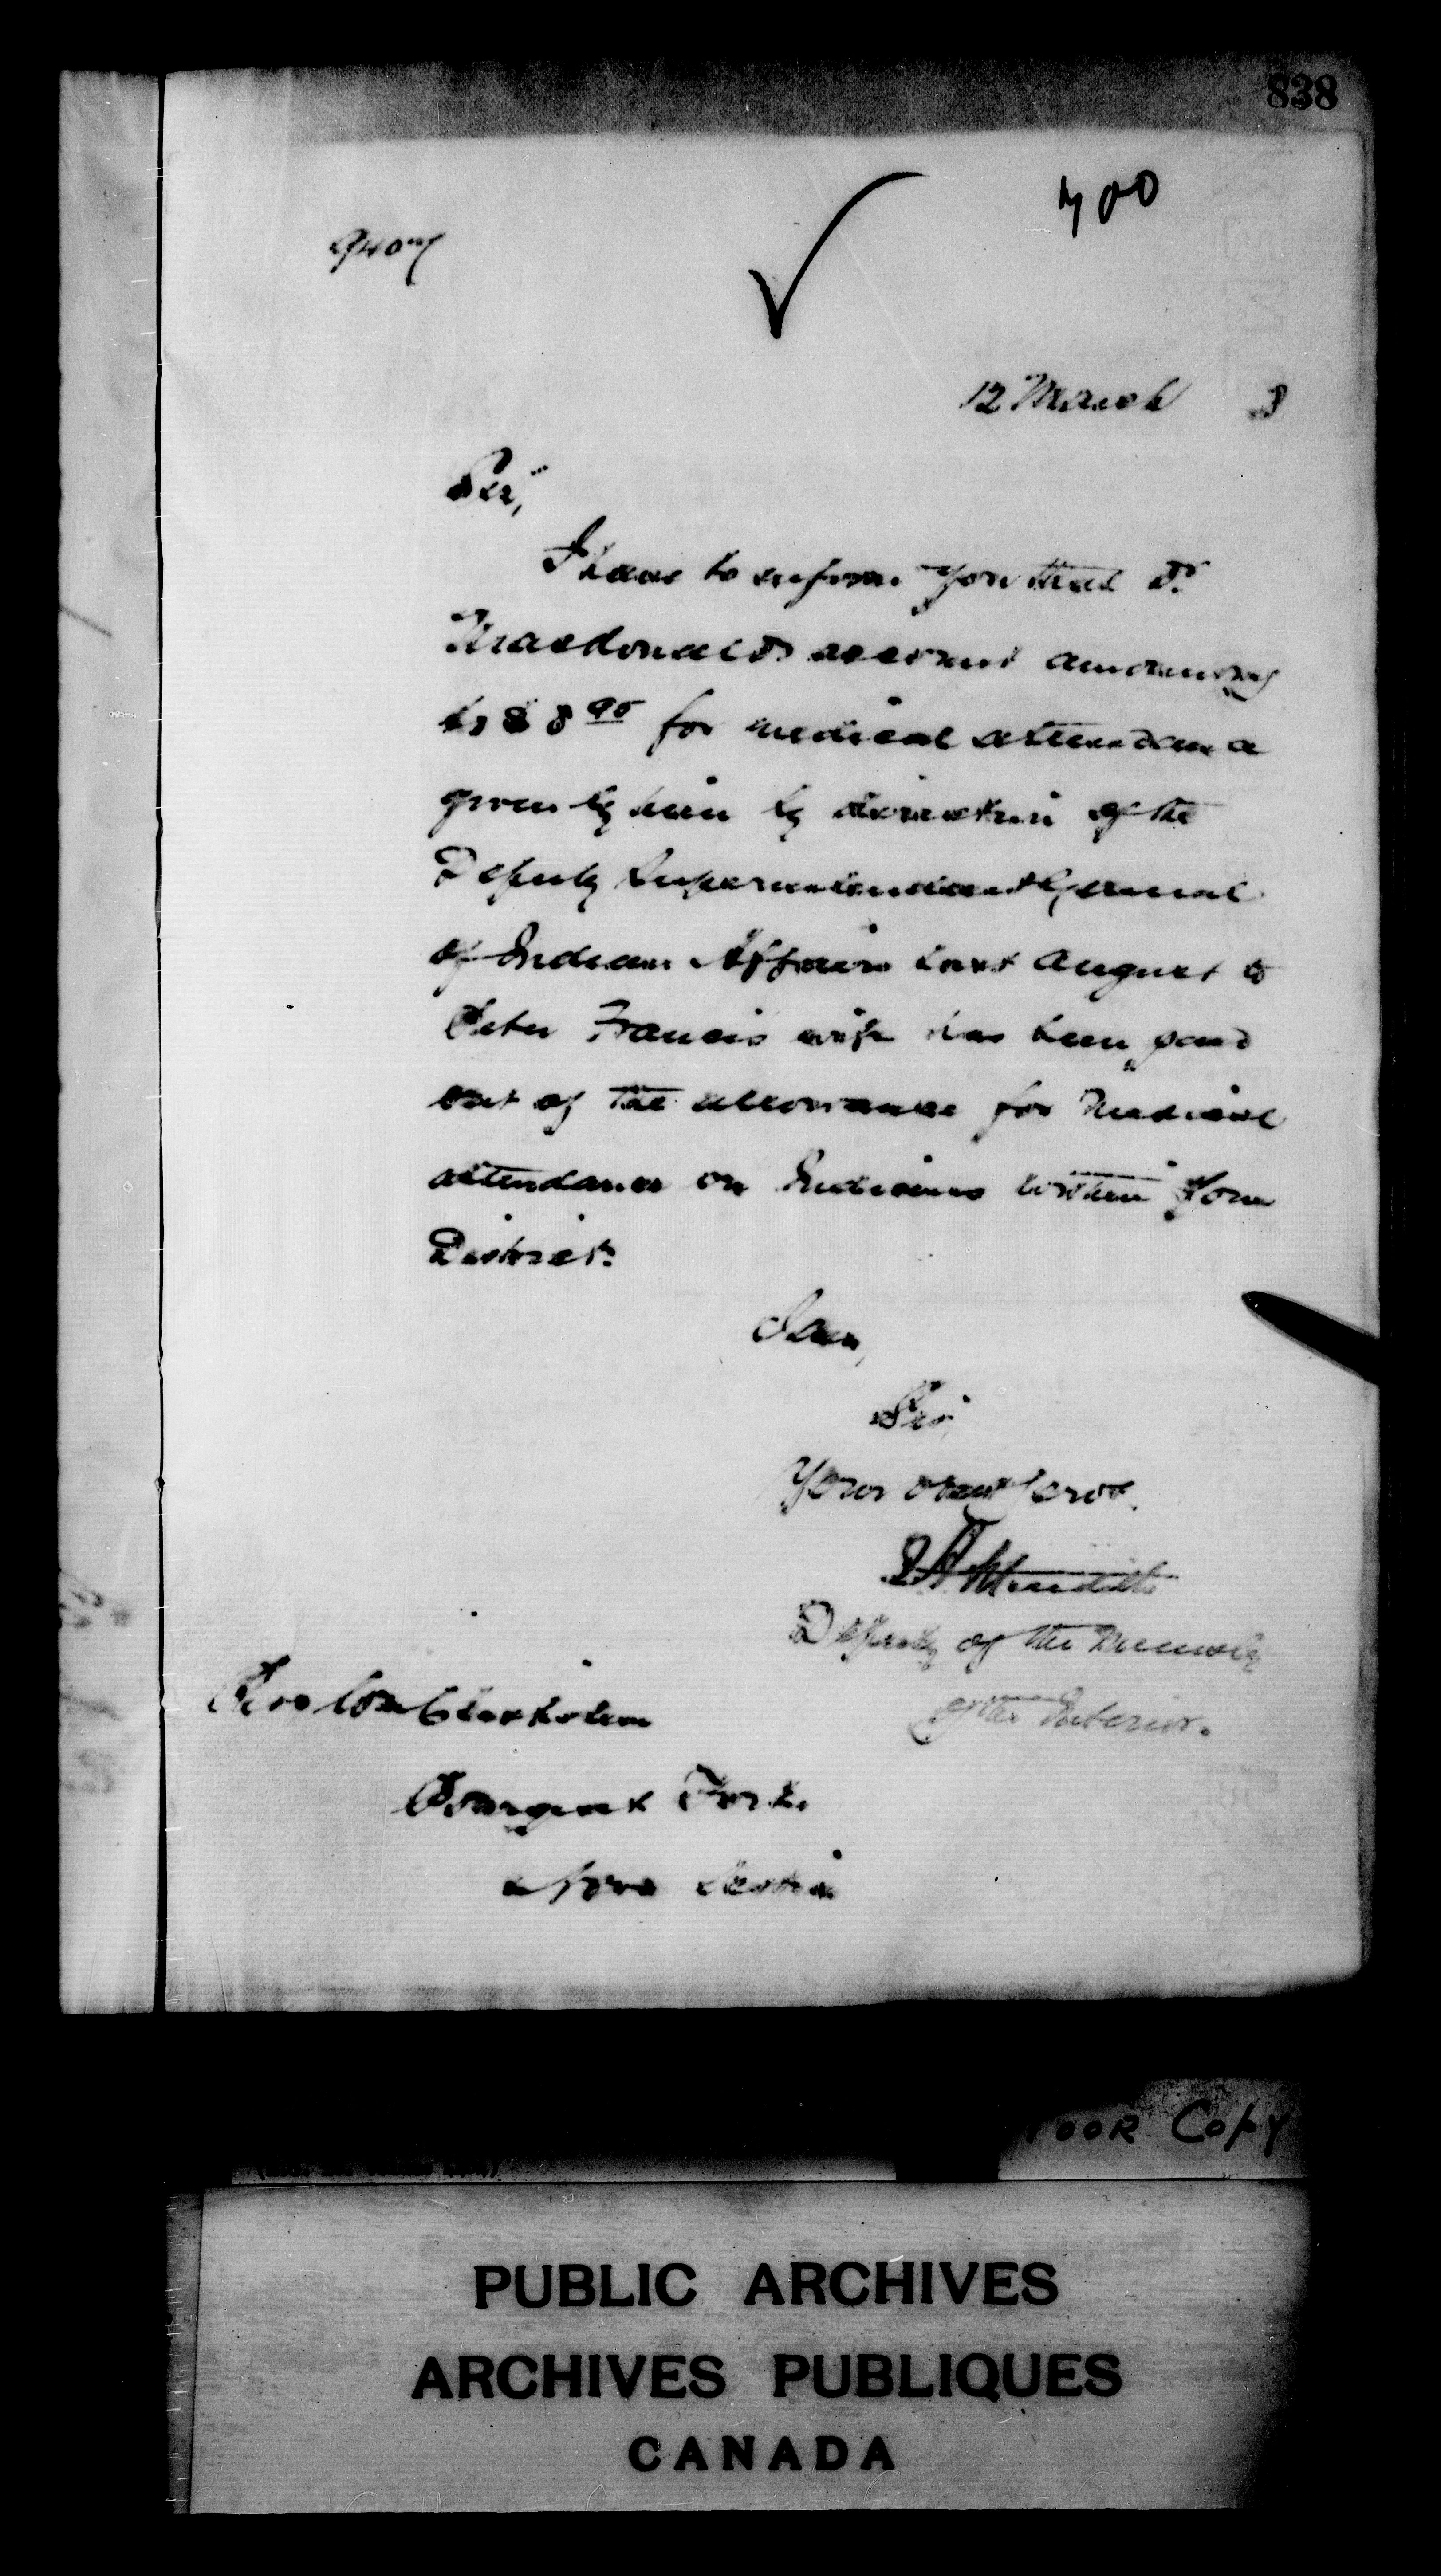 838
700
12 March 8
Sir,
I have to inform you that Dr
Macdonald's account amounting
to $8 90 for medical attendance
given by him by direction of the
Deputy Superintendent General
of Indian Affairs last August to
Peter Francis wife has been paid
out of the allowance for Medical
attendance on Indians within your
District.
I am,
Sir,
Your obedt Servt.
Meredith
Deputy of the Minister
of the Interior.
Chisholm
Forks
Nova Scotia
POOR COPY
PUBLIC ARCHIVES
ARCHIVES PUBLIQUES
CANADA